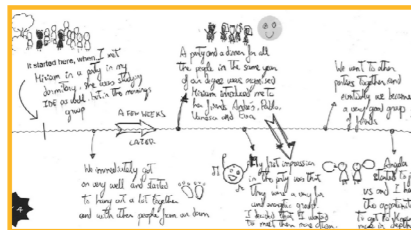 It started here, when I met
Miriam in a party in my
dormitory. She was studying
as well but in the mornings
group
A FEW WEEKS
LATER
We immediately got
on very well and started
to hang out a lot together
and with other people from our dorm
A party and a dinner for all
the people in the same year
of our degree was organised
Miriam introduced me to
her friends
Vanessa and
My first impression
in the party was that
they were a very fun
and energetic group.
I decided that I wanted
to meet them more
We went to other
parties together and
we became
a very good group
of friends
started to
us and I
the opportunity
to get to
more in
4